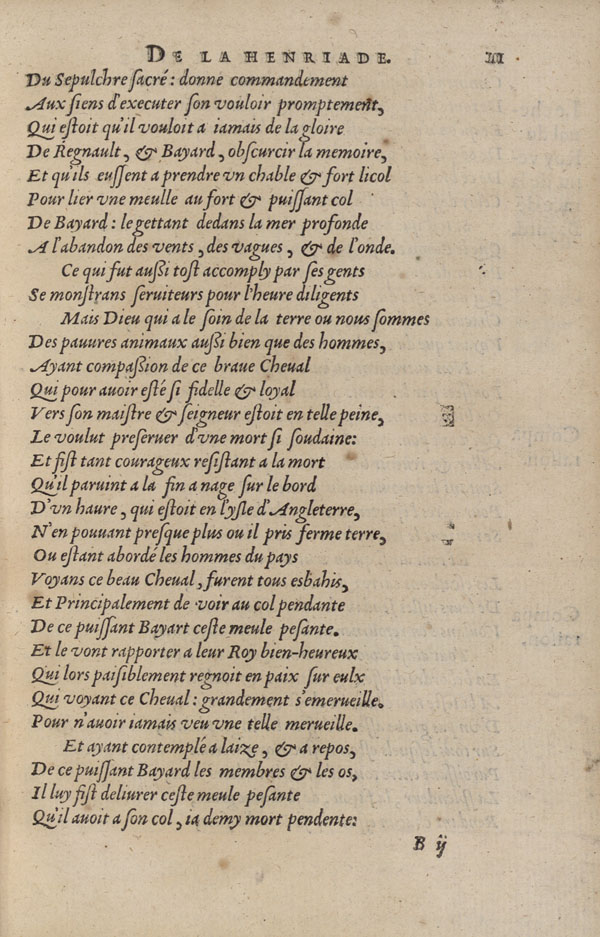 DE LA HENRIADE. III
Du Sepulchre ſacré: donne commandement
Aux ſiens d'executer ſon vouloir promptement,
Qui eſtoit qu'il vouloit a iamais de la gloire
De Regnault, & Bayard, obſcurcir la memoire,
Et qu'ils euſſent a prendre vn chable & fort licol
Pour lier vne meulle au fort & puiſſant col
De Bayard: le gettant dedans la mer profonde
A l'abandon des vents, des vagues, & de l'onde.
Ce qui fut auſſi toſt accomply par ſes gents
Se monſtrans ſeruiteurs pour l'heure diligents
Mais Dieu qui a le ſoin de la terre ou nous ſommes
Des pauures animaux auſſi bien que des hommes,
Ayant compaſſion de ce braue Cheual
Qui pour auoir eſté ſi fidelle & loyal
Vers ſon maiſtre & ſeigneur eſtoit en telle peine,
Le voulut preſeruer d'vne mort ſi ſoudaine:
Et fiſt tant courageux reſiſtant a la mort
Qu'il paruint a la fin a nage ſur le bord
D'vn haure, qui eſtoit en l'yſle d'Angleterre,
N'en pouuant preſque plus ou il pris ferme terre,
Ou eſtant abordé les hommes du pays
Voyans ce beau Cheual, furent tous esbahis,
Et Principalement de voir au col pendante
De ce puiſſant Bayart ceſte meule peſante.
Et le vont rapporter a leur Roy bien-heureux
Qui lors paiſiblement regnoit en paix ſur eulx
Qui voyant ce Cheual: grandement s'emerueille.
Pour n'auoir iamais veu vne telle merueille.
Et ayant contemplé a laize, & a repos,
De ce puiſſant Bayard les membres & les os,
Il luy fiſt deliurer ceſte meule peſante
Qu'il auoit a ſon col, ia demy mort pendente:
B ij